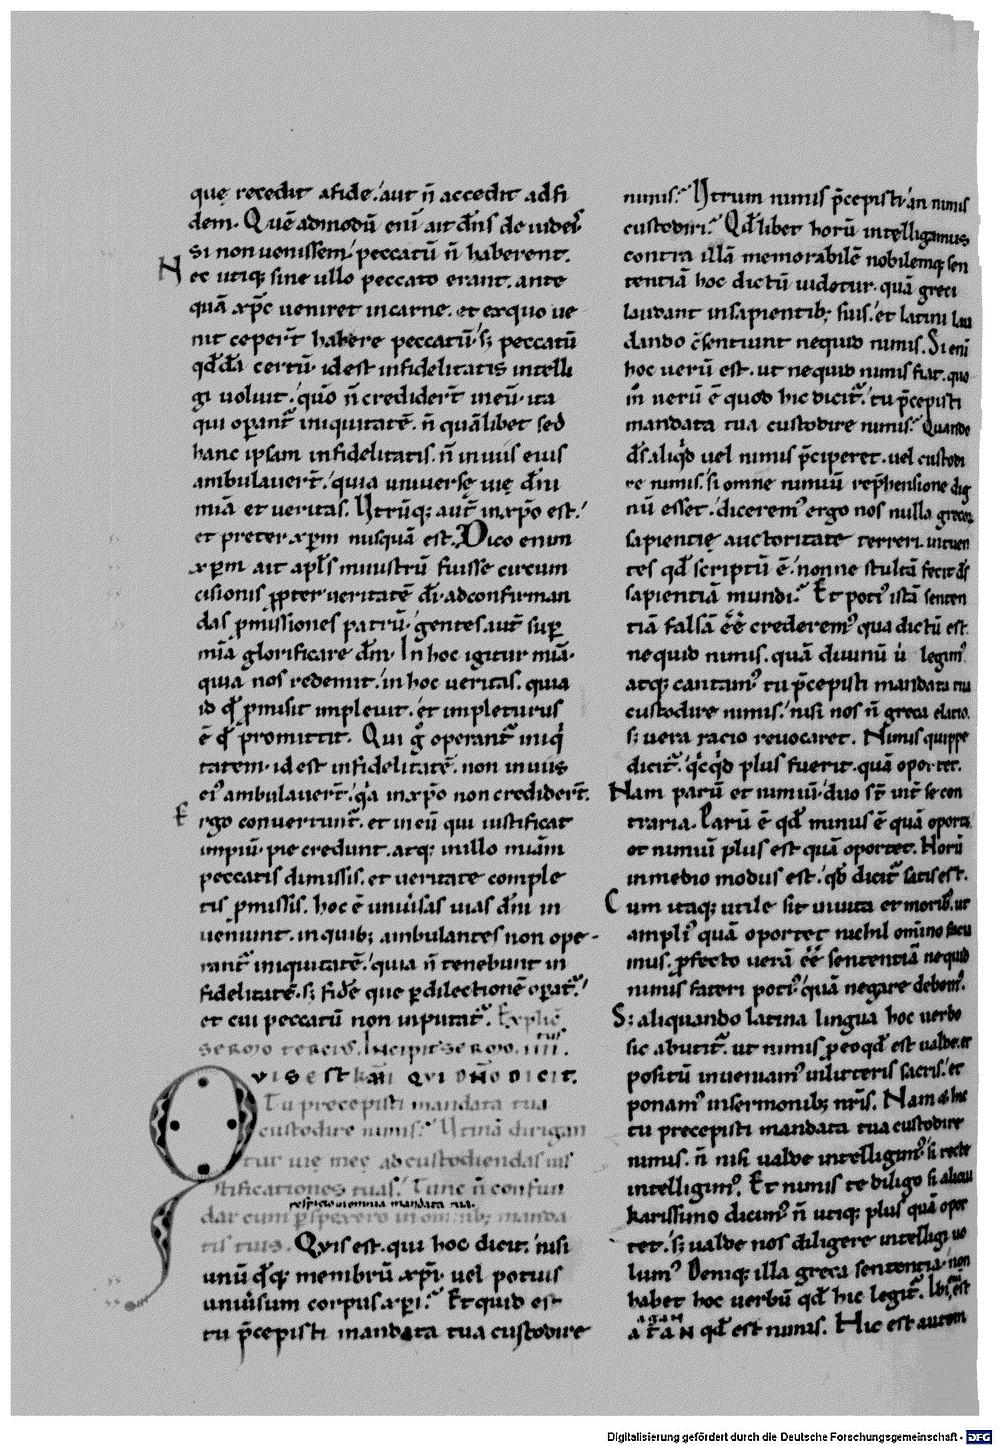 quę recedit afide. aut n̄ accedit adfi
dem. Quēadmodū enī ait dn̄s de iudeis.
Si non uenissem peccatū n̄ haberent.
Nec utiq; sine ullo peccato erant. ante
quā xp̄c ueniret incarne. et exquo ue
nit ceper̄t habere peccatū. s; peccatū
qd̄dā certū. id est infidelitatis intelli
gi uoluit. quō n̄ credider̄t ineū. ita
qui operant̄ iniquitatē. n̄ quālibet sed
hanc ipsam infidelitatis. n̄ inuiis eius
ambulauer̄t. quia uniuersę uię dn̄i
mīa et ueritas. Utrūq; aut̄ inxp̄o est.
et preter xpm̄ nusquā est. Dico enim
xpm̄ ait apl̄s ministrū fuisse circum
cisionis pp̄ter ueritatē dī. adconfirman
das pmissiones patrū. gentes aut̄ sup
mīa glorificare dm̄. In hoc igitur mīa.
quia nos redemit. in hoc ueritas. quia
id qd̄ pmisit impleuit. et impleturus
ē qd̄ promittit. Qui g̊ operant̄ iniq
tatem. id est infidelitatē. non inuiis
ei' ambulauer̄t. qa inxp̄o non credider̄t.
Ergo conuertunt̄. et ineū qui iustificat
impiū. pie credunt. atq; inillo miām
peccatis dimissis. et ueritate comple
tis pmissis. hoc ē uniusas uias dn̄i in
ueniunt. inquib; ambulantes non ope-
rant̄ iniquitatē. quia n̄ tenebunt in
fidelitatē. s; fidē que p dilectionē operat̄.
et cui peccatū non inputat̄. Explic̄
sermo tercius. Incipit sermo. IIII.
QVIS EST hic QVI DNO DICIT.
Tu precepisti mandata tua
custodire nimis. Utinā dirigan
tur uię meę adcustodiendas ius
tificationes tuas. Tunc n̄ confun
respicio inomnia mandata tua.
dar cum pspexero in omnib; manda
tis tuis. Quis est. qui hoc dicit. nisi
unū qdq; membrū xpi. uel potius
uniuersum corpus xpi. Et quid est
tu p̄cepisti mandata tua custodire
nimis. Utrum nimis p̄cepisti. an nimis
custodiri. Qd̄libet horū intelligamus
contra illā memorabilē nobilemq; sen
tentiā hoc dictū uidetur. quā greci
laudant insapientib; suis. et latini lau
dando c̄sentiunt nequid nimis. Si enī
hoc uerū est. ut nequid nimis fiat. quo
m̄ uerū ē quod hic dicit̄. tu p̄cepisti
mandata tua custodire nimis. Quando
d̄s. aliqd uel nimis p̄ciperet. uel custodi
re nimis. si omne nimiū rep̄hensione dig
nū esset. dicerem' ergo nos nulla grecorum
sapientię auctoritate terreri. intuen
tes qd̄ scriptū ē. nonne stultā fecit ds
sapientiā mundi. Et poti' istā senten
tiā falsā eē crederem' qua dictū est.
nequid nimis. quā diuinū ū legim'
atq; cantam' tu p̄cepisti mandata tua
custodire nimis. nisi nos n̄ greca elatio.
s; uera racio reuocaret. Nimis quippe
dicit̄. qcqd plus fuerit. quā oportet.
Nam parū et nimiū. duo st̄ int̄ se con
traria. Parū ē qd̄ minus ē quā oportet.
et nimiū plus est quā oportet. Horū
inmedio modus est. qd̄ dicit̄ satis est.
Cum itaq; utile sit inuita et morib. ut
ampli' quā oportet nichil omino facia
mus. pfecto uerā eē sententiā nequid
nimis fateri poti' quā negare debem'.
S; aliquando latina lingua hoc uerbo
sic abutit̄. ut nimis p eo qd̄ est ualde. et
positū inueniam' inlitteris sacris. et
ponam' insermonib; nr̄is. Nam & hic
tu precepisti mandata tua custodire
nimis. n̄ nisi ualde intelligim' si recte
intelligim'. Et nimis te diligo si alicui
karissimo dicim' n̄ utiq; plus quā opor
tet. s; ualde nos diligere intelligi uo
lum'. Deniq; illa greca sententia. non
habet hoc uerbū qd̄ hic legit̄. Ibi eni est
agan
aTaN qd̄ est nimis. Hic est autem
Digitalisierung gefördert durch die Deutsche Forschungsgemeinschaft - DFG